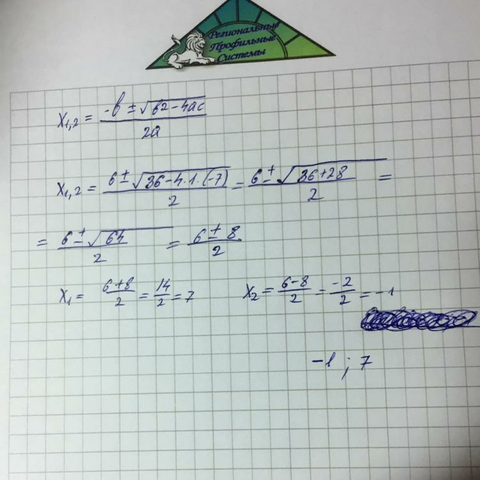 Региональные
Профильные
Системы
x₁,₂ = (-b ± √(b2 - 4ac)) / 2a
x₁,₂ = (6 ± √(36 - 4·1·(-7))) / 2 = (6 ± √(36 + 28)) / 2 =
= (6 ± √64) / 2 = (6 ± 8) / 2
x₁ = (6+8)/2 = 14/2 = 7 x₂ = (6-8)/2 = -2/2 = -1
-1 ; 7